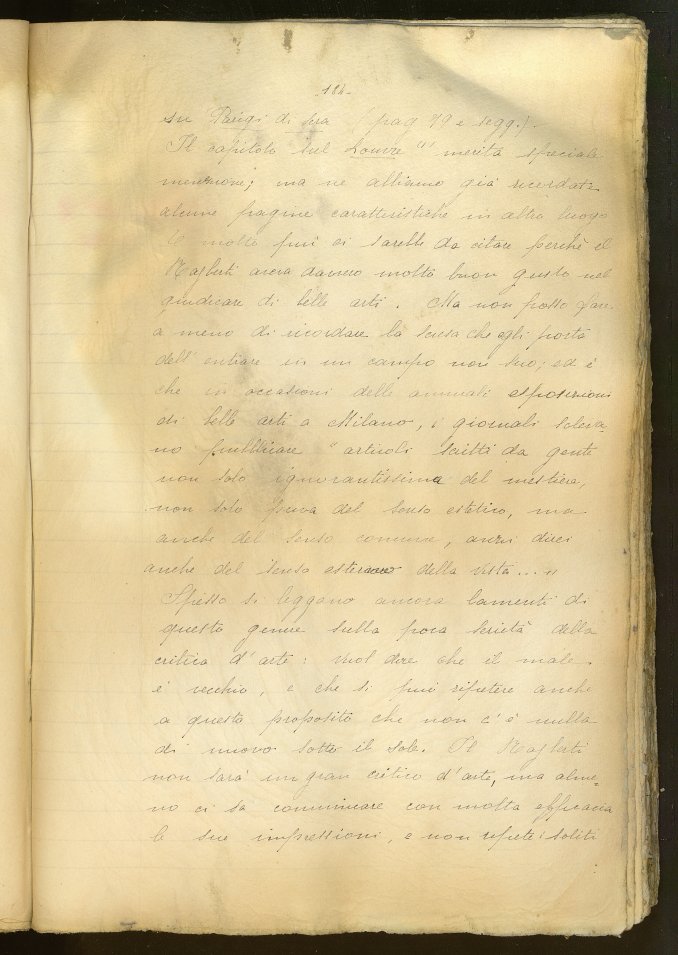 184.
su Parigi di sera (pag 79 e segg.).
Il capitolo sul Louvre "" merita speciale
menzione; ma ne abbiamo già ricordate
alcune pagine caratteristiche in altro luogo
E molte più ci sarebbe da citare perchè il
Rajberti aveva davvero molto buon gusto nel
giudicare di belle arti. Ma non posso fare
a meno di ricordare la scusa che egli porta
dell'entrare in un campo non suo; ed è
che in occasioni delle annuali esposizioni
di belle arti a Milano, i giornali soleva-
no pubblicare " articoli scritti da gente
non solo ignorantissima del mestiere,
non solo priva del senso estetico, ma
anche del senso comune, anzi direi
anche del senso esterno della vista... "
Spesso si leggano ancora lamenti di
questo genere sulla poca serietà della
critica d'arte: vuol dire che il male
è vecchio, e che si può ripetere anche
a questo proposito che non c'è nulla
di nuovo sotto il sole. Il Rajberti
non sarà un gran critico d'arte, ma alme-
no ci sa comunicare con molta efficacia
le sue impressioni, e non ripete i soliti